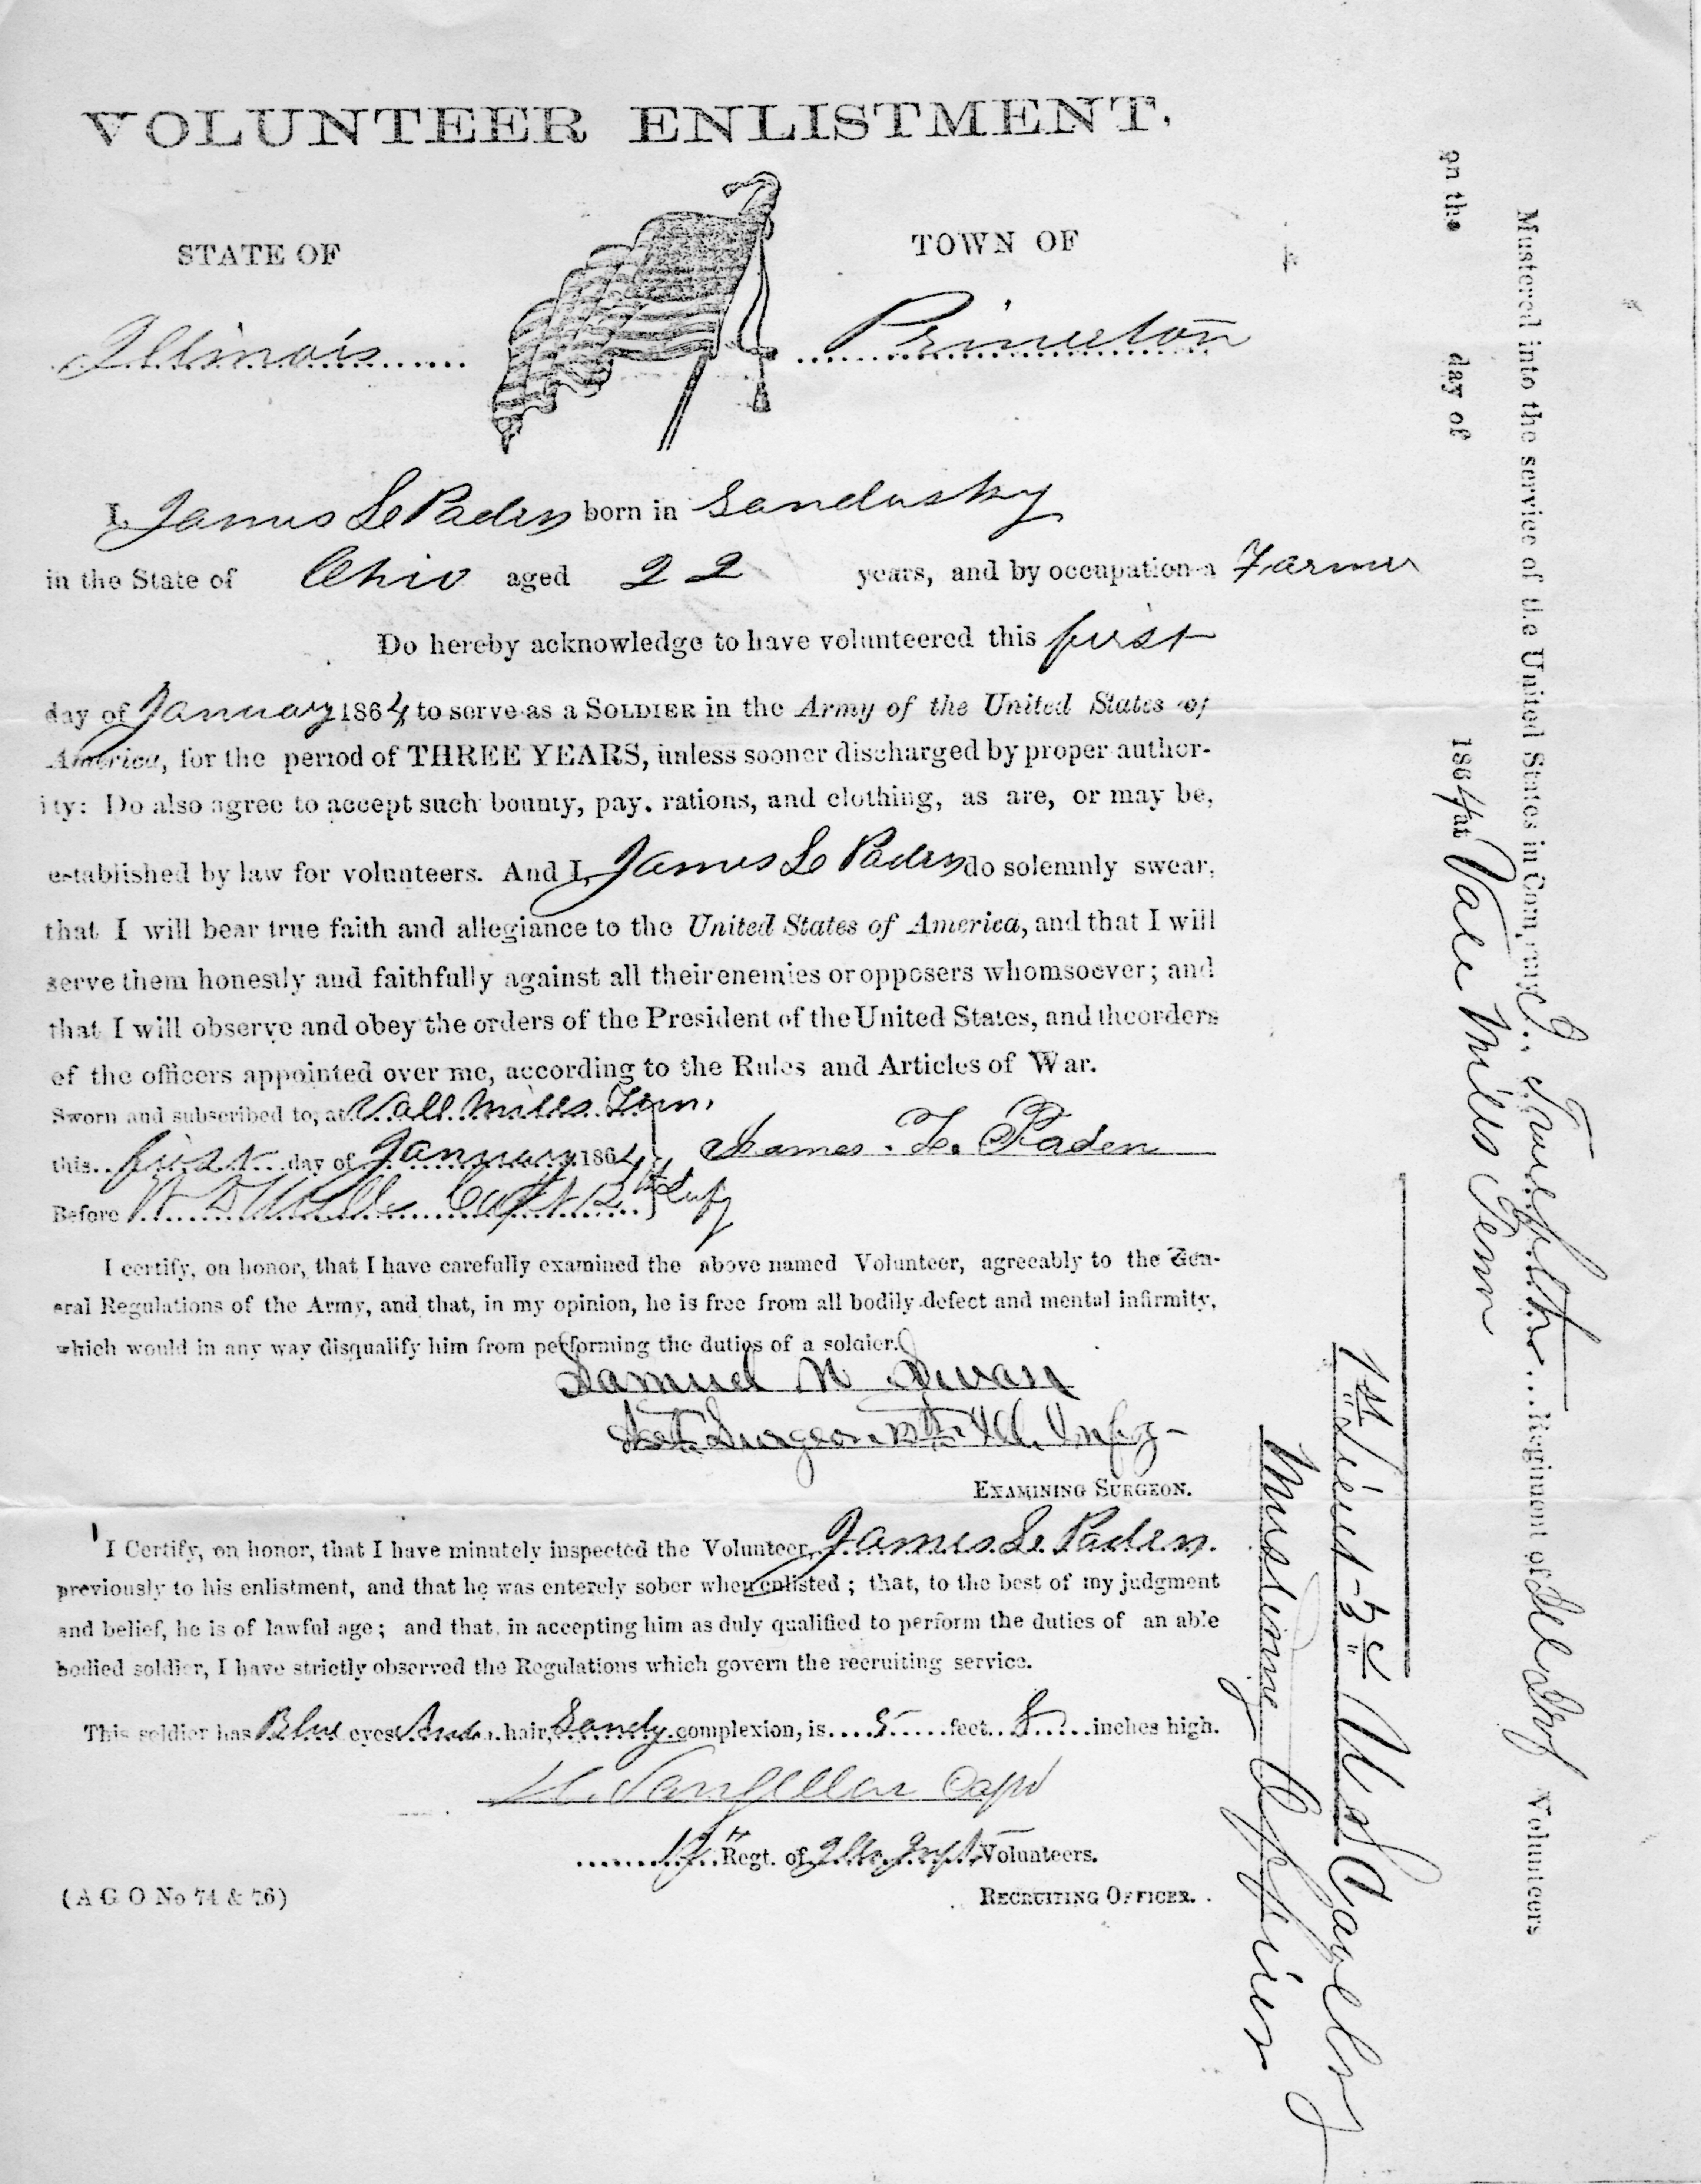 VOLUNTEER ENLISTMENT.
STATE OF
TOWN OF
Illinois
Princeton
I, James L Paden born in Sandusky
in the State of Ohio aged 22 years, and by occupation a Farmer
Do hereby acknowledge to have volunteered this first
day of January 1864 to serve as a SOLDIER in the Army of the United States of
America, for the period of THREE YEARS, unless sooner discharged by proper author-
ity: Do also agree to accept such bounty, pay, rations, and clothing, as are, or may be,
established by law for volunteers. And I, James L Paden do solemnly swear,
that I will bear true faith and allegiance to the United States of America, and that I will
serve them honestly and faithfully against all their enemies or opposers whomsoever; and
that I will observe and obey the orders of the President of the United States, and the orders
of the officers appointed over me, according to the Rules and Articles of War.
Sworn and subscribed to, at Vall Mills Tenn.
this first day of January 1864
James. L. Paden
Before Capt 12th Infy
I certify, on honor, that I have carefully examined the above named Volunteer, agreeably to the Gen-
eral Regulations of the Army, and that, in my opinion, he is free from all bodily defect and mental infirmity,
which would in any way disqualify him from performing the duties of a soldier.
Samuel N Swan
Ast. Surgeon 12th Ill. Infy-
EXAMINING SURGEON.
I Certify, on honor, that I have minutely inspected the Volunteer, James L Paden.
previously to his enlistment, and that he was enterely sober when enlisted; that, to the best of my judgment
and belief, he is of lawful age; and that, in accepting him as duly qualified to perform the duties of an able
bodied soldier, I have strictly observed the Regulations which govern the recruiting service.
This soldier has Blue eyes hair, Sandy complexion, is 5 feet 8 inches high.
Capt
12" Regt. of Ills Inft Volunteers.
(A G O No 74 & 76)
RECRUITING OFFICER.
Mustered into the service of the United States in Company Regiment of Ill Infy Volunteers
on the day of 1864 at Vale Mills Tenn
1st Lieut 3d U S Cavelry
Mustering Officer